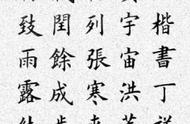 楷書丁
宇宙洪荒
列張寒來
閏餘成歲
致雨露結